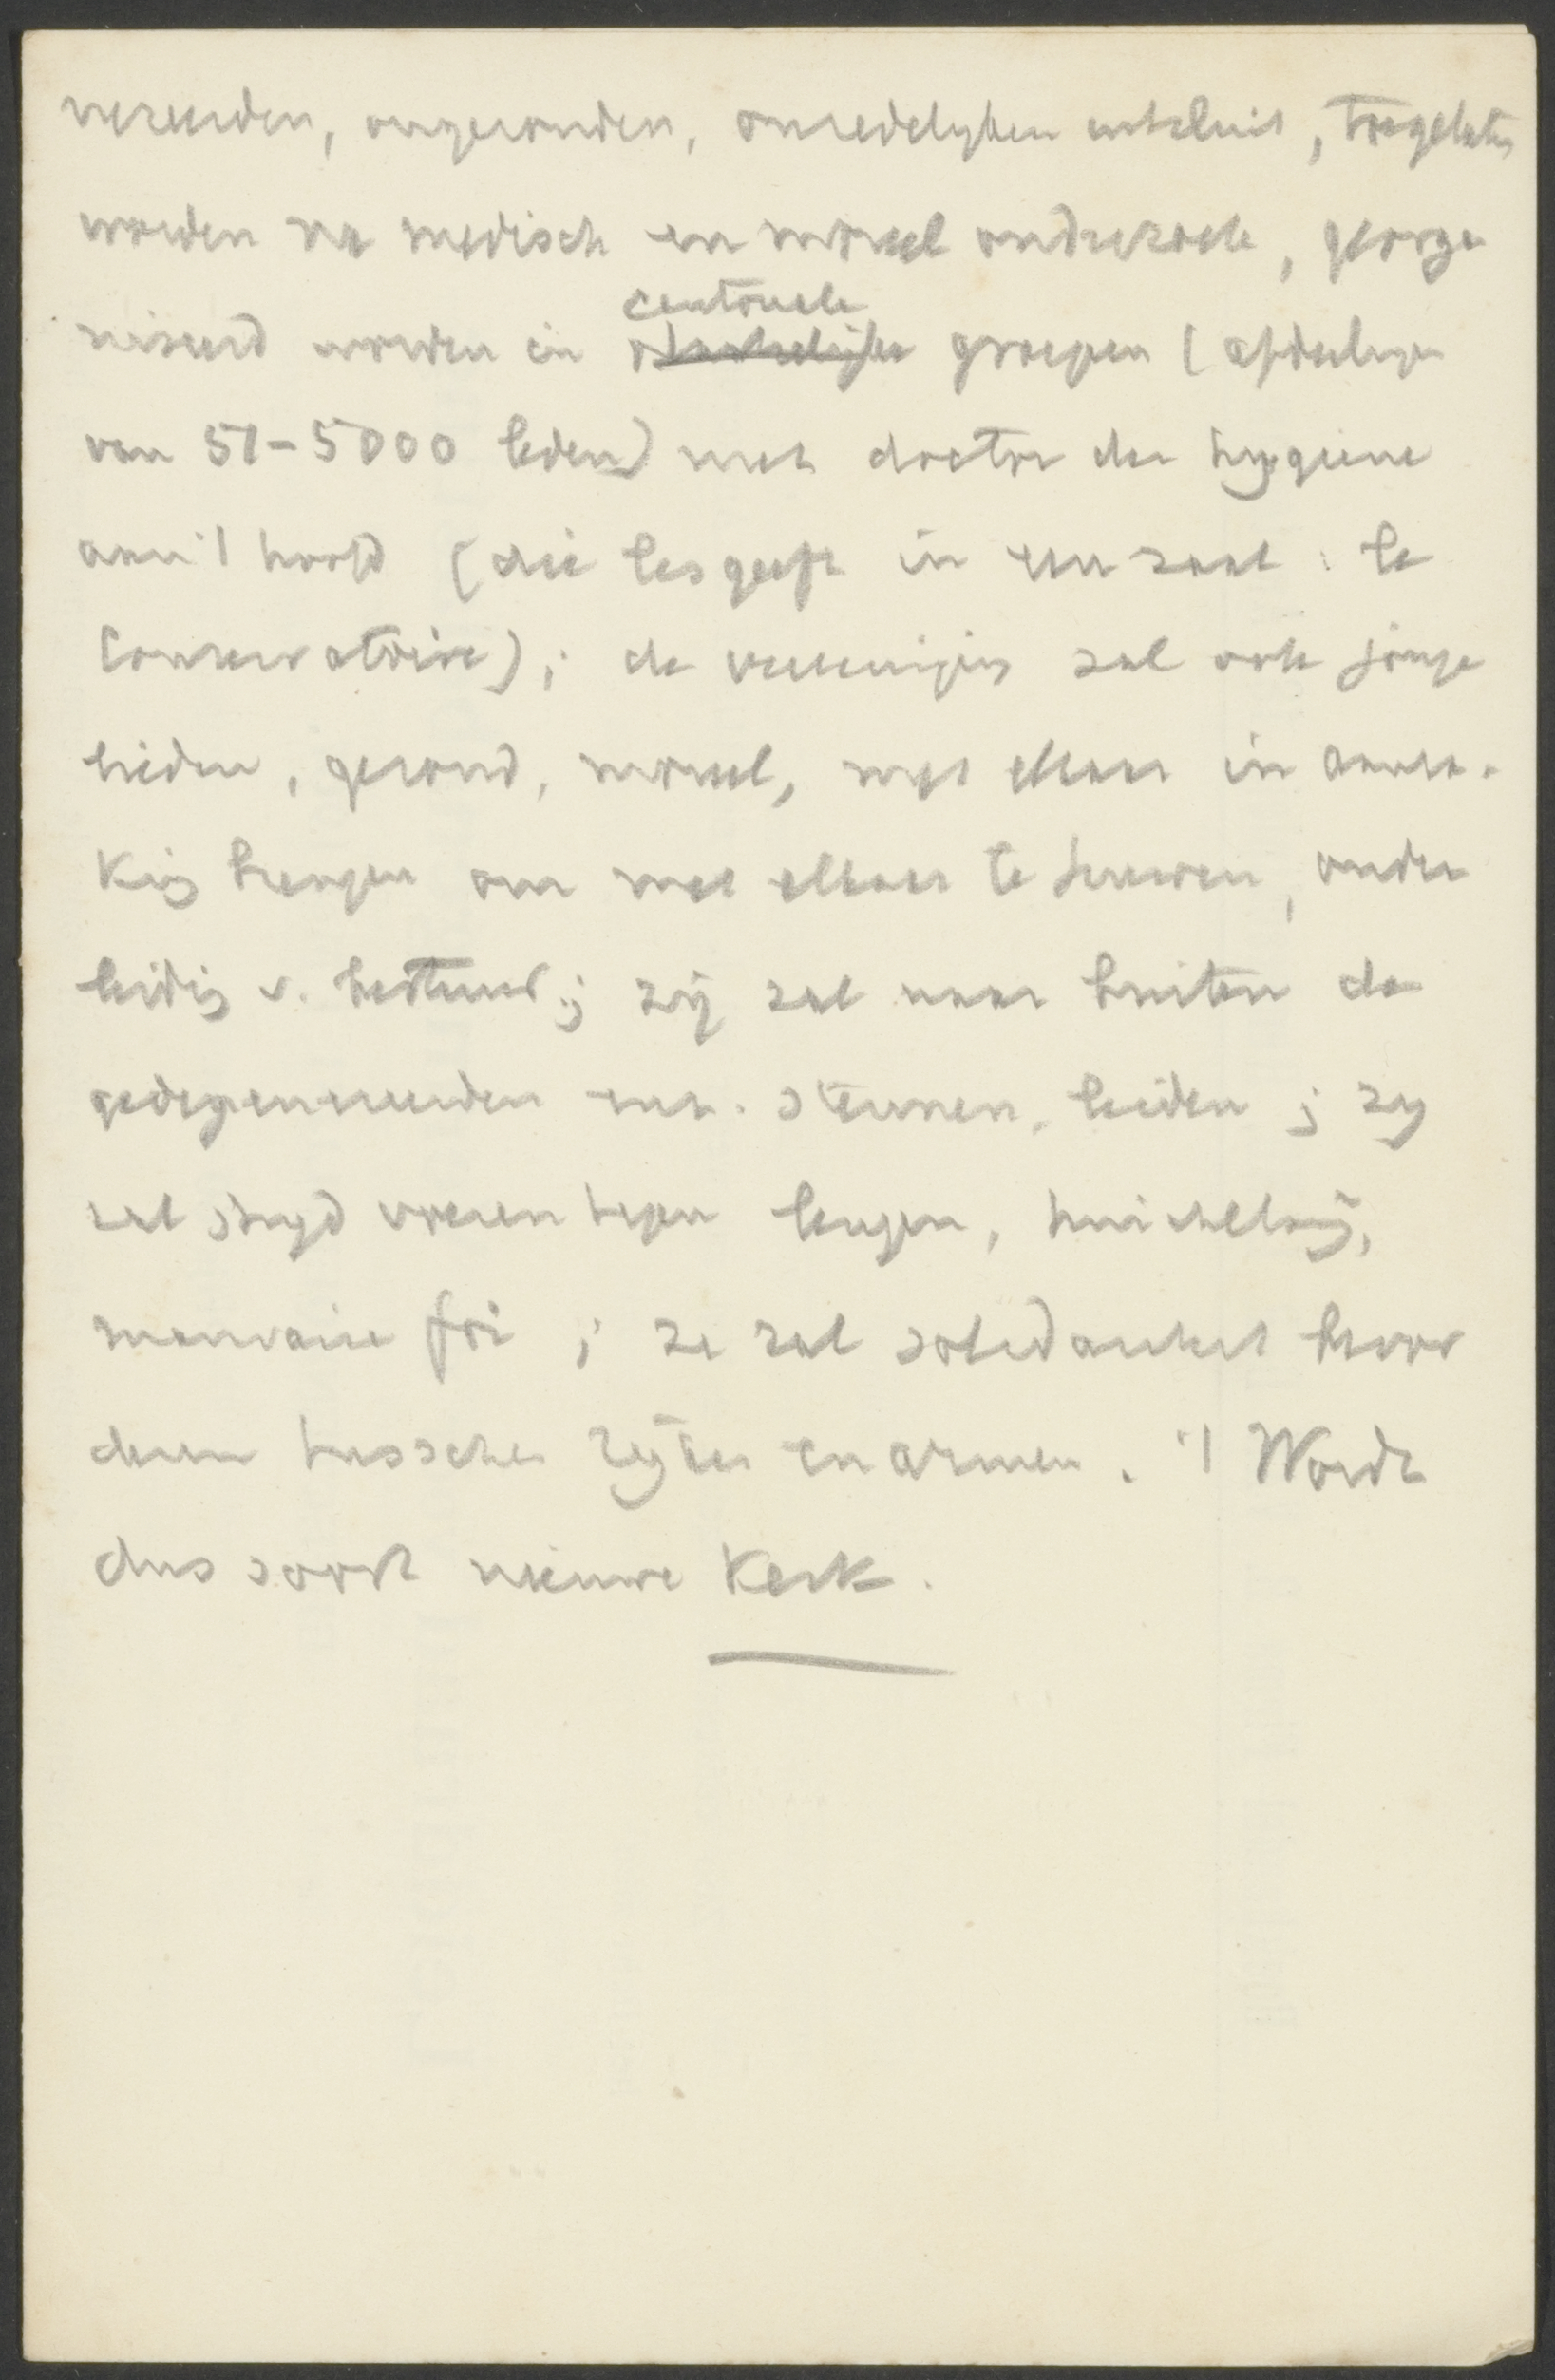 onredelyken uitsluit, toegelaten
worden na medisch en moreel onderzoek, georga
niseerd worden in cantonale groepen (afdeelingen
van 51-5000 leden) met doctor der hygiene
aan 't hoofd (die les geeft in een zaal : le
Conservatoire); de vereeniging zal ook jonge
lieden, gezond, moreel, met elkaar in aanra-
king brengen om met elkaar te huwen, onder
leiding v. bestuur; zij zal naar buiten de
gedegenereerden enz. steunen, leiden; zy
zal strijd voeren tegen leugen, huichelarij,
mauvaise foi; ze zal solidariteit bevor
deren tusschen rijken en armen. 't Wordt
dus soort nieuwe Kerk.